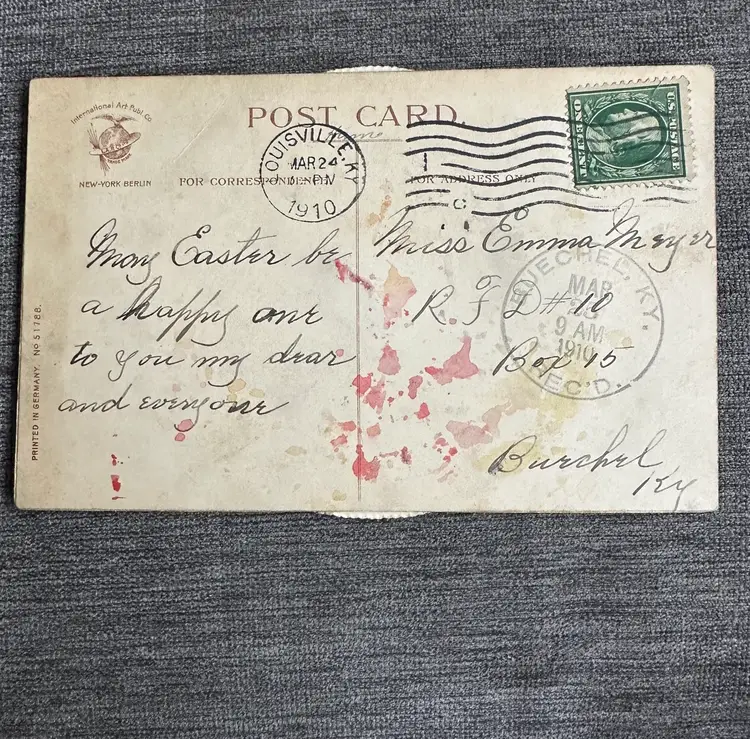 International Art Publ. Co.
NEW-YORK BERLIN
POST CARD.
FOR CORRESPONDENCE
FOR ADDRESS ONLY
LOUISVILLE, KY.
MAR 24
PM
1910
C
May Easter be
a happy one
to you my dear
and everyone
Miss Emma Meyer
R. F D # 10
Box 15
Buechel
Ky
BUECHEL, KY.
MAR
9 AM
1910
REC'D.
PRINTED IN GERMANY. No 51788.